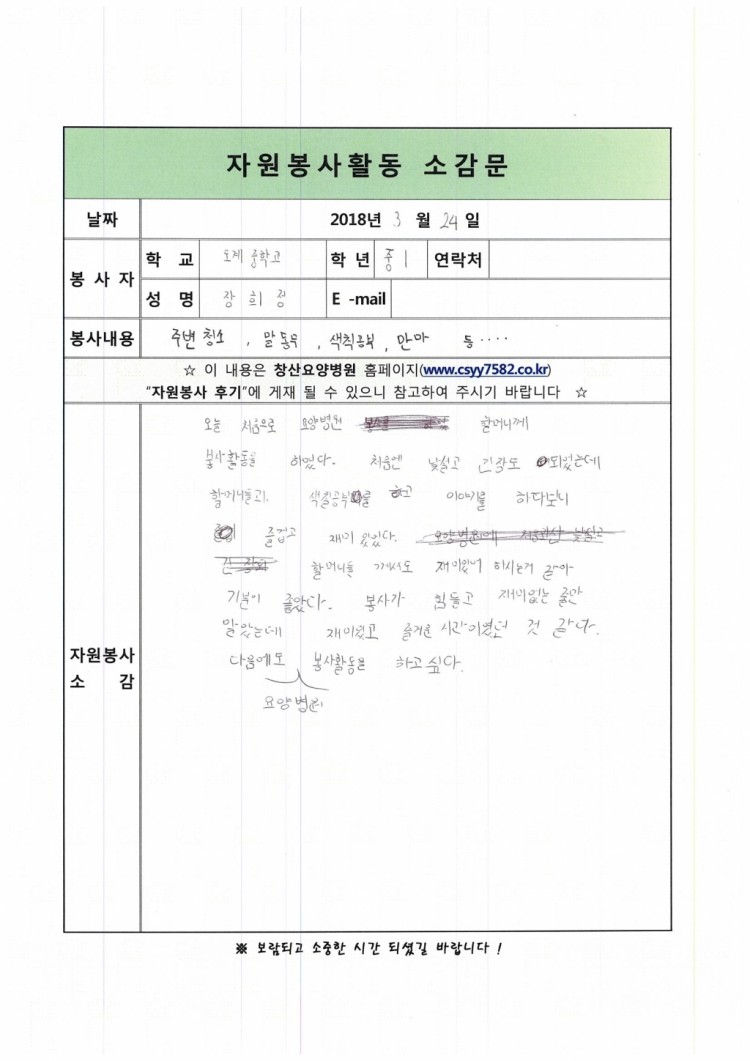 자원봉사활동 소감문
날짜 2018년 3 월 24 일
봉 사 자 학 교 도계 중학교 학 년 중 1 연락처
성 명 장 희 정 E -mail
봉사내용 주변 청소 , 말 동무 , 색칠공부 , 안마 등 ····
☆ 이 내용은 창산요양병원 홈페이지(www.csyy7582.co.kr)
"자원봉사 후기"에 게재 될 수 있으니 참고하여 주시기 바랍니다 ☆
자원봉사
소 감
오늘 처음으로 요양병원 할머니께
봉사활동을 하였다. 처음엔 낯설고 긴장도 되었는데
할머니들과 색칠공부를 하고 이야기를 하다보니
즐겁고 재미 있었다. 요양병원에 처음 낯설고
할머니들 께서도 재미있어 하시는거 같아
기분이 좋았다. 봉사가 힘들고 재미없는 줄만
알았는데 재미있고 즐거운 시간이였던 것 같다.
다음에도 봉사활동을 하고 싶다.
요양병원
※ 보람되고 소중한 시간 되셨길 바랍니다 !